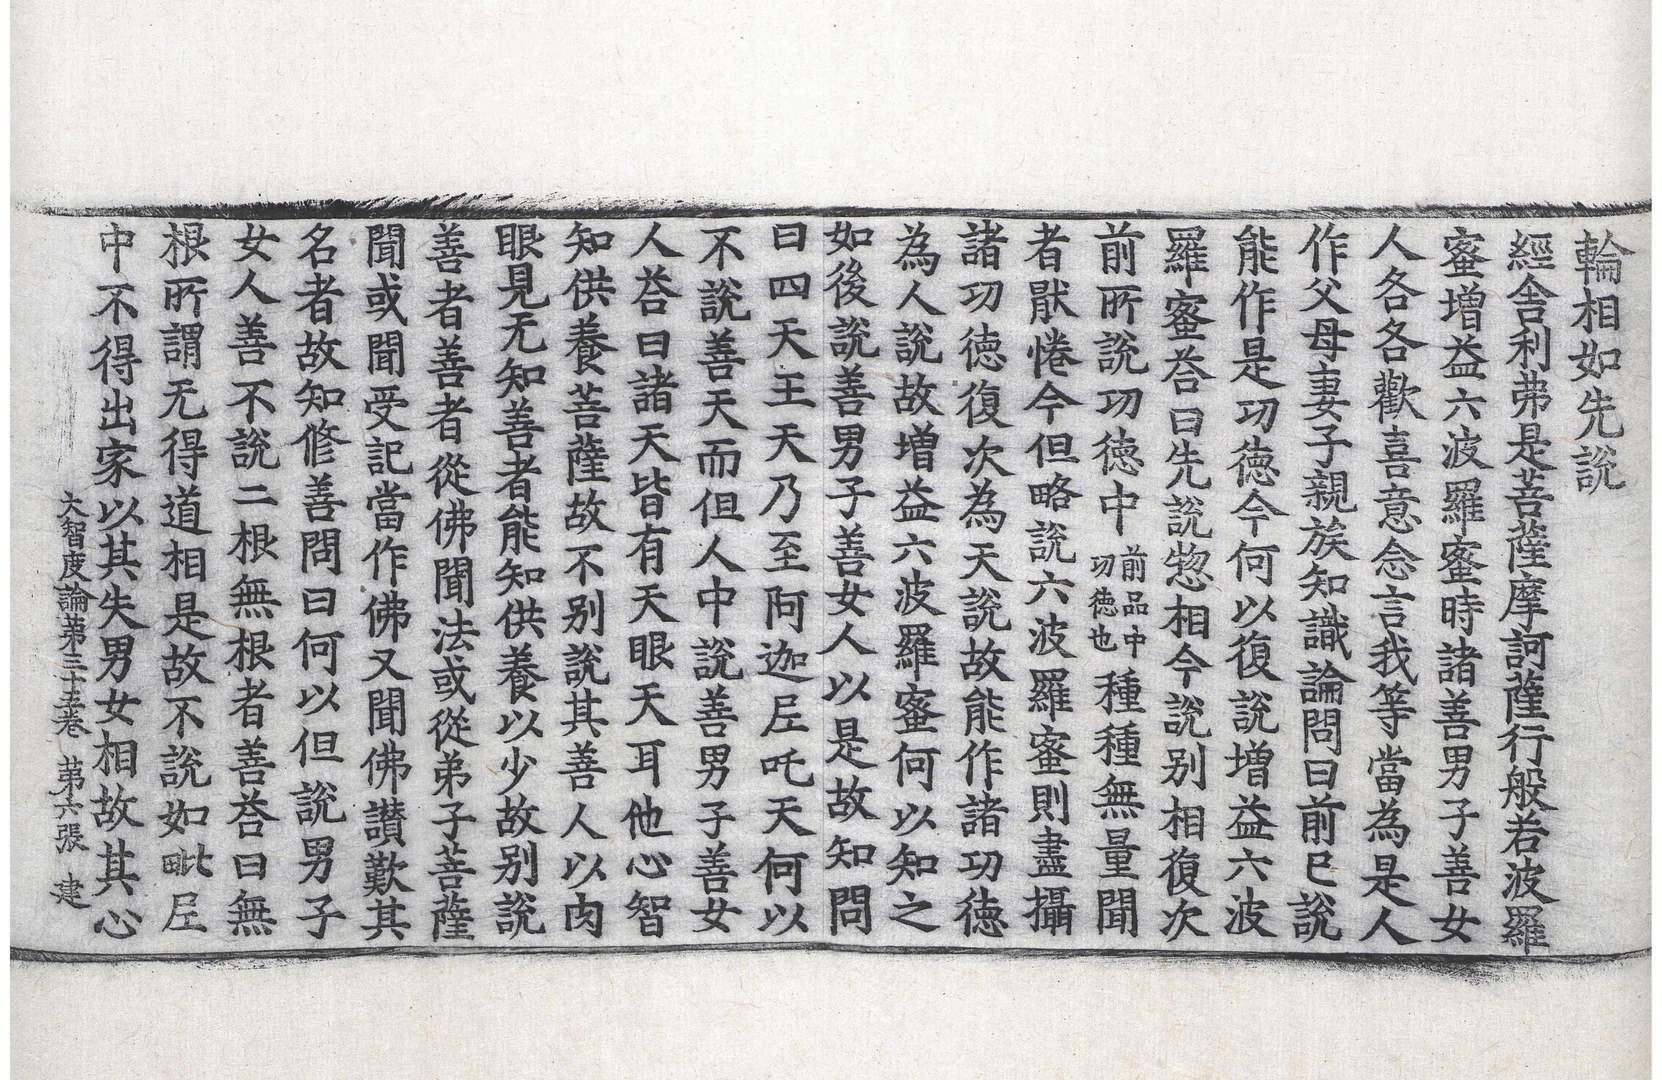 輪相如先說
經舍利弗是菩薩摩訶薩行般若波羅
蜜增益六波羅蜜時諸善男子善女
人各各歡喜意念言我等當為是人
作父母妻子親族知識論問曰前已說
能作是功德今何以復說增益六波
羅蜜荅曰先說惣相今說別相復次
前所說功德中前品中功德也種種無量聞
者猒惓今但略說六波羅蜜則盡攝
諸功德復次為天說故能作諸功德
為人說故增益六波羅蜜何以知之
如後說善男子善女人以是故知問
曰四天王天乃至阿迦尼吒天何以
不說善天而但人中說善男子善女
人荅曰諸天皆有天眼天耳他心智
知供養菩薩故不別說其善人以肉
眼見无知善者能知供養以少故別說
善者善者從佛聞法或從弟子菩薩
聞或聞受記當作佛又聞佛讃歎其
名者故知修善問曰何以但說男子
女人善不說二根無根者善荅曰無
根所謂无得道相是故不說如毗尼
中不得出家以其失男女相故其心
大智度論第三十五卷 第六張 建